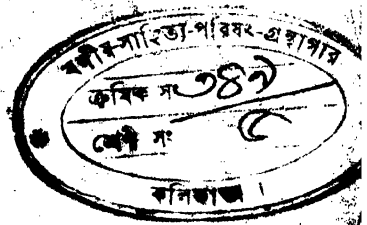 বঙ্গীয়-সাহিত্য-পরিষৎ-গ্রন্থাগার
ক্রমিক সং ৩৪৯
শ্রেণী সং ৫
কলিকাতা।